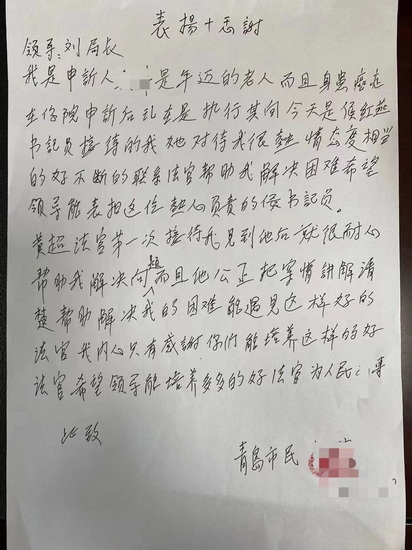 表揚十志謝
领导：刘局长
我是申訴人 是年迈的老人而且身患癌症
在你院申訴后现在是执行其间今天是侯红燕
书記员接待的我她对待我很热情态度相当
的好不断的联系法官帮助我解决困难希望
领导能表扬这位热心负责的侯书記员。
黄超法官第一次接待我见到他后就很耐心
帮助我解决问题而且他公正把案情讲解清
楚帮助解决我的困难能遇見这样好的
法官我内心只有感謝你们能培养这样的好
法官希望领导能培养多多的好法官为人民
此致
青島市民